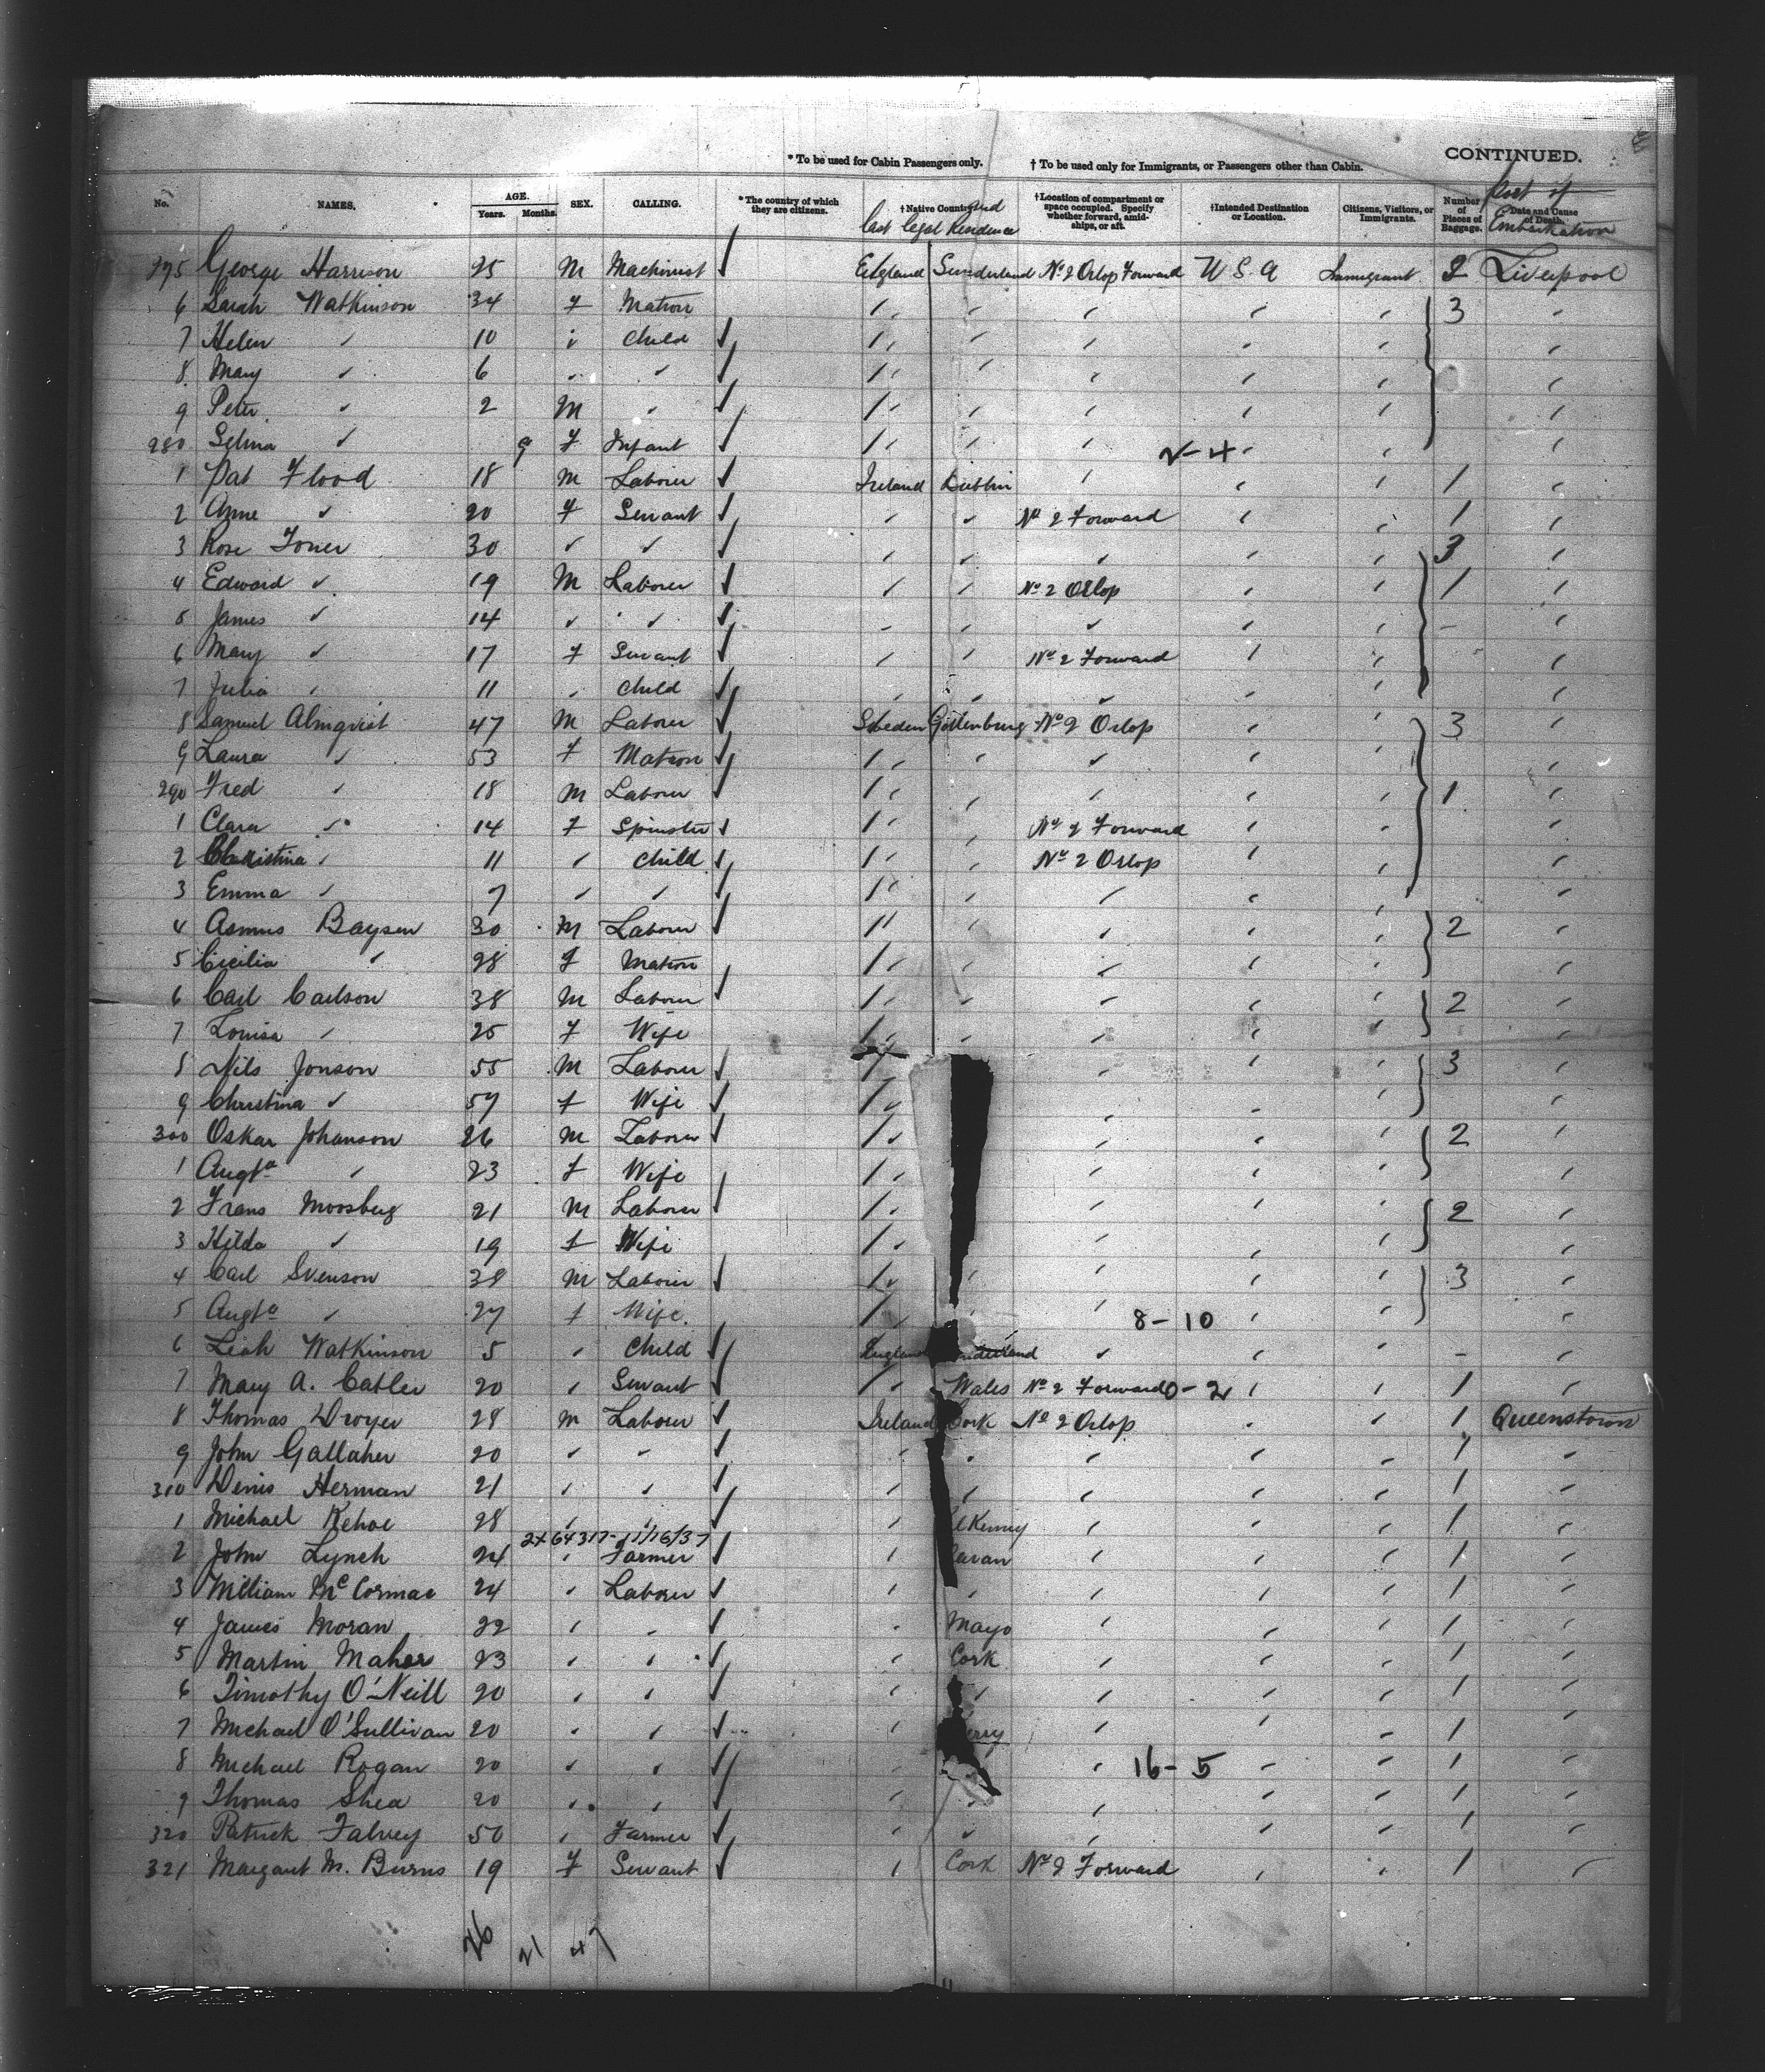 * To be used for Cabin Passengers only. † To be used only for Immigrants, or Passengers other than Cabin. CONTINUED.
No. NAMES. AGE. Years. Months. SEX. CALLING. * The country of which they are citizens. † Native Country and last legal Residence † Location of compartment or space occupied. Specify whether forward, amidships, or aft. † Intended Destination or Location. Citizens, Visitors, or Immigrants. Number of Pieces of Baggage. Date and Cause of Death. Port of Embarkation
275 George Harrison 25 M Machinist ✓ England Sunderland No 2 Orlop Forward U S A Immigrant 2 Liverpool
6 Sarah Watkinson 34 F Matron " " " " " 3 "
7 Helen " 10 " Child ✓ " " " " " "
8 Mary " 6 " " ✓ " " " " " "
9 Peter " 2 M " ✓ " " " " " "
280 Selina " 9 F Infant ✓ " " " 2-4 " " "
1 Pat Flood 18 M Laborer ✓ Ireland Dublin " " " 1 "
2 Anne " 20 F Servant ✓ " " No 2 Forward " " 1 "
3 Rose Toner 30 " " ✓ " " " " " 3 "
4 Edward " 19 M Laborer ✓ " " No 2 Orlop " " 1 "
5 James " 14 " " ✓ " " " " " - "
6 Mary " 17 F Servant ✓ " " No 2 Forward " " "
7 Julia " 11 " Child ✓ " " " " " "
8 Samuel Almqvist 47 M Laborer ✓ Sweden Gottenburg No 2 Orlop " " 3 "
9 Laura " 53 F Matron ✓ " " " " " "
290 Fred " 18 M Laborer ✓ " " " " " 1 "
1 Clara " 14 F Spinster ✓ " " No 2 Forward " " "
2 Christina " 11 " Child ✓ " " No 2 Orlop " " "
3 Emma " 7 " " ✓ " " " " " "
4 Asmus Baysen 30 M Laborer ✓ " " " " " 2 "
5 Cicilia " 28 F Matron " " " " " "
6 Carl Carlson 38 M Laborer ✓ " " " " " 2 "
7 Louisa " 25 F Wife " " " " " "
8 Nils Jonson 55 M Laborer ✓ " " " " 3 "
9 Christina " 57 F Wife ✓ " " " " "
300 Oskar Johanson 26 M Laborer ✓ " " " " 2 "
1 Augta " 23 F Wife " " " " "
2 Frans Moosberg 21 M Laborer ✓ " " " " 2 "
3 Hilda " 19 F Wife " " " " "
4 Carl Svenson 38 M Laborer ✓ " " " " " 3 "
5 Augta " 27 F Wife " " " 8-10 " " "
6 Leah Watkinson 5 " Child ✓ England " " " - "
7 Mary A. Catler 20 " Servant ✓ " Wales No 2 Forward 0-2 " " 1 "
8 Thomas Dwyer 28 M Laborer ✓ Ireland Cork No 2 Orlop " " 1 Queenstown
9 John Gallaher 20 " " ✓ " " " " " 1 "
310 Denis Herman 21 " " ✓ " " " " " 1 "
1 Michael Kehoe 28 " " ✓ " lKenny " " " 1 "
2X64317- 11/16/37
2 John Lynch 24 " Farmer ✓ " avan " " " 1 "
3 William McCormac 24 " Laborer ✓ " " " " " 1 "
4 James Moran 22 " " ✓ " Mayo " " " 1 "
5 Martin Maher 23 " " ✓ " Cork " " " 1 "
6 Timothy O'Neill 20 " " ✓ " " " " " 1 "
7 Michael O'Sullivan 20 " " ✓ " erry " " " 1 "
8 Michael Rogan 20 " " ✓ " " 16-5 " " 1 "
9 Thomas Shea 20 " " ✓ " " " " " 1 "
320 Patrick Falvey 50 " Farmer ✓ " " " " " 1 "
321 Margaret M. Burns 19 F Servant ✓ " Cork No 2 Forward " " 1 "
26 21 47